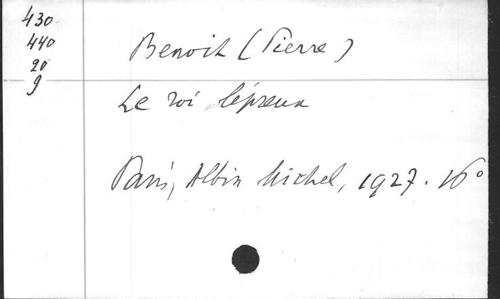 430
440
20
9
Benoit (Pierre)
Le roi lépreux
Paris, Albin Michel, 1927. 16°